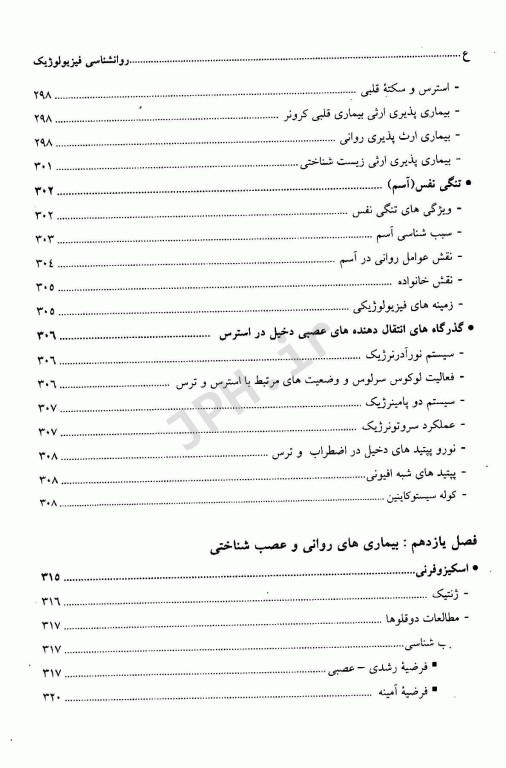 ع ..... روانشناسی فیزیولوژیک
- استرس و سکتهٔ قلبی ..... ۲۹۸
- بیماری پذیری ارثی بیماری قلبی کرونر ..... ۲۹۸
- بیماری ارث پذیری روانی ..... ۲۹۸
- بیماری پذیری ارثی زیست شناختی ..... ۳۰۱
• تنگی نفس(آسم) ..... ۳۰۲
- ویژگی های تنگی نفس ..... ۳۰۲
- سبب شناسی آسم ..... ۳۰۳
- نقش عوامل روانی در آسم ..... ۳۰۴
- نقش خانواده ..... ۳۰۵
- زمینه های فیزیولوژیکی ..... ۳۰۵
• گذرگاه های انتقال دهنده های عصبی دخیل در استرس ..... ۳۰۶
- سیستم نورآدرنرژیک ..... ۳۰۶
- فعالیت لوکوس سرلوس و وضعیت های مرتبط با استرس و ترس ..... ۳۰۶
- سیستم دو پامینرژیک ..... ۳۰۷
- عملکرد سروتونرژیک ..... ۳۰۷
- نورو پپتید های دخیل در اضطراب و ترس ..... ۳۰۸
- پپتید های شبه افیونی ..... ۳۰۸
- کوله سیستوکاینین ..... ۳۰۸
فصل یازدهم : بیماری های روانی و عصب شناختی
• اسکیزوفرنی ..... ۳۱۵
- ژنتیک ..... ۳۱۶
- مطالعات دوقلوها ..... ۳۱۷
ب شناسی ..... ۳۱۷
▪ فرضیهٔ رشدی – عصبی ..... ۳۱۷
▪ فرضیهٔ آمینه ..... ۳۲۰
JPH.ir